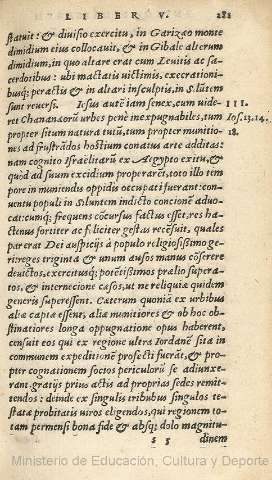 LIBER V. 281
statuit: & diuiso exercitu, in Garizæo monte
dimidium eius collocauit, & in Gibale alterum
dimidium, in quo altare erat cum Leuitis ac sa-
cerdotibus: ubi mactatis uictimis, execrationi-
busq; peractis & in altari insculptis, in Silũtem
sunt reuersi. Iesus autẽ iam senex, cum uide-
ret Chananæorũ urbes penè inexpugnabiles, tum
propter situm natura tutũ, tum propter munitio-
nes ad frustrãdos hostium conatus arte additas:
nam cognito Israëlitarũ ex Aegypto exitu, &
quòd ad suum excidium properarẽt, toto illo tem
pore in muniendis oppidis occupati fuerant: con-
uentu populi in Siluntem indicto concionẽ aduo-
cat: cumq; frequens cõcursus factus esset, res ha-
ctenus fortiter ac feliciter gestas recẽsuit, quales
par erat Dei auspicijs à populo religiosissimo ge-
ri: reges triginta & unum ausos manus cõserere
deuictos, exercitusq; potẽtissimos prælio supera-
tos, & internecione cæsos, ut ne reliquiæ quidem
generis superessent. Cæterum quoniã ex urbibus
aliæ captæ essent, aliæ munitiores & ob hoc ob-
stinatiores longa oppugnatione opus haberent,
censuit eos qui ex regione ultra Iordanẽ sita in
communem expeditionẽ prosecti fuerãt, & pro-
pter cognationem socios periculorũ se adiunxe-
rant, gratijs prius actis ad proprias sedes remit-
tendos: deinde ex singulis tribubus singulos te-
statæ probitatis uiros eligendos, qui regionem to-
tam permensi bona fide & absq; dolo magnitu-
s 5 dinem
III.
Ios. 13. 14.
18.
Ministerio de Educación, Cultura y Deporte